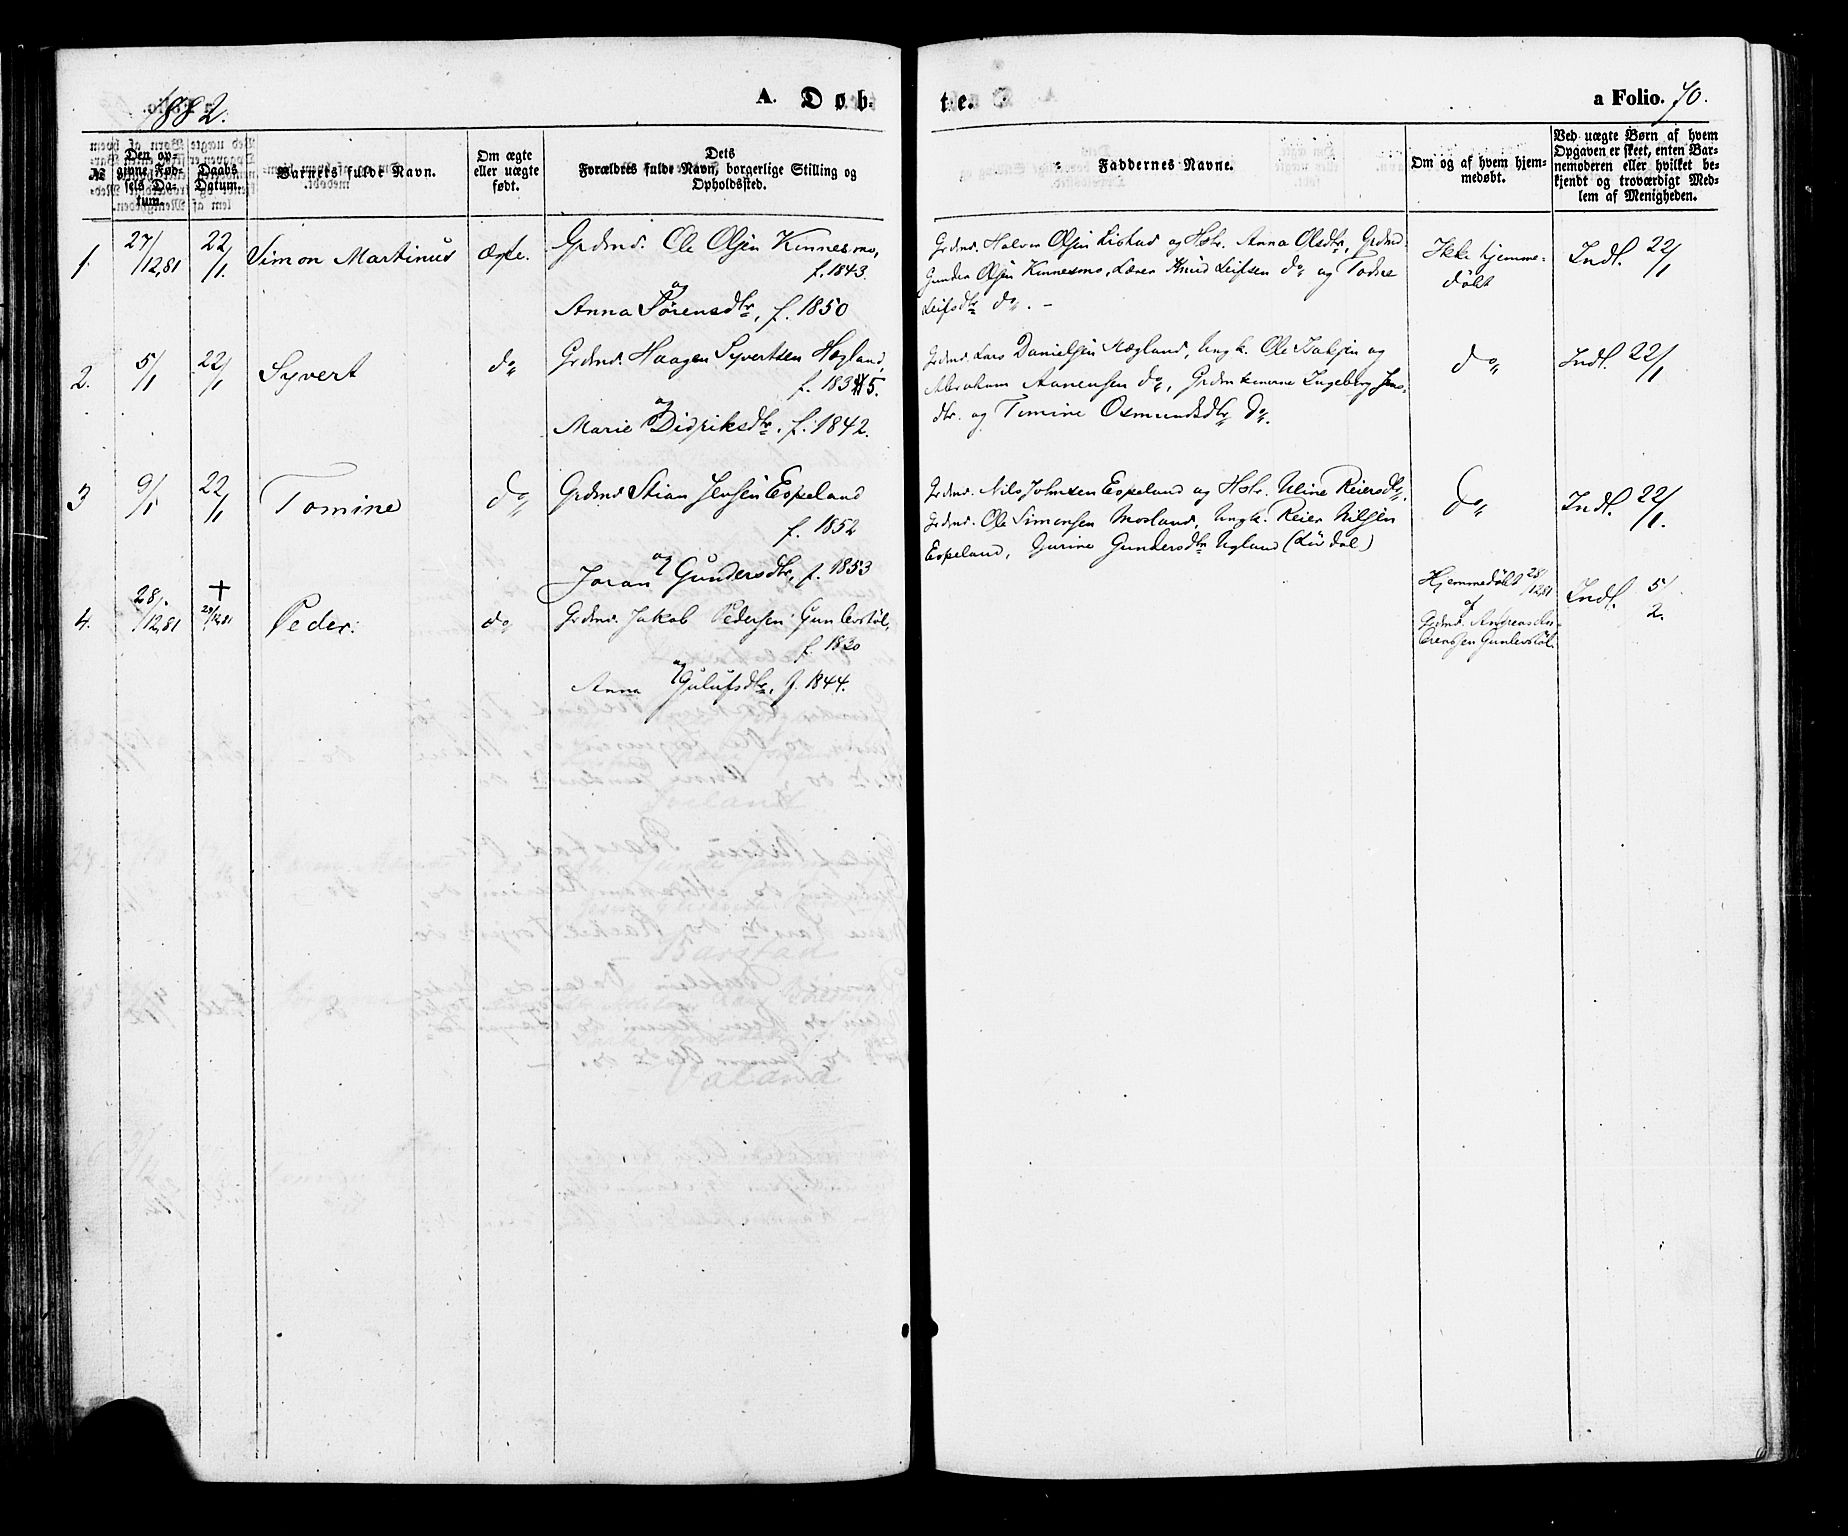 1882.
A. Døb-
te.
a Folio. 70.
№
Den op-
givne Fød-
sels Da-
tum.
Daabs
Datum.
Barnets fulde Navn.
Om ægte
eller uægte
født.
Dets
Forældres fulde Navn, borgerlige Stilling og
Opholdssted.
Faddernes Navne.
Om og af hvem hjem-
medøbt.
Ved uægte Børn af hvem
Opgaven er skeet, enten Bar-
nemoderen eller hvilket be-
kjendt og troværdigt Med-
lem af Menigheden.
1
27/12,81
22/1.
Simon Martinus
Ægte.
Grdmd. Ole Olsen Kinnesmo,
f. 1843.
og
Anna Sørensdtr, f. 1850
Grdmd. Halvor Olsen Listad og Hstr. Anna Olsdtr, Grdmd
Gunder Olsen Kinnesmo, Lærer Knud Leifsen do og Todne
Leifsdtr do. -
Ikke hjemme-
døbt
Indl. 22/1
2.
5/1
22/1
Syvert
do
Grdmd. Haagen Syvertsen Høgland,
f. 1835.
og
Marie Didriksdtr. f. 1842.
Grdmd. Lars Danielsen Mægland, Ungk. Ole Jakobsen og
Abraham Aanensen do, Grdmkonerne Ingeborg Jens-
dtr. og Tomine Osmundsdtr do.
do
Indl. 22/1
3
9/1
22/1
Tomine
do
Grdmd Stian Jensen Espeland
f. 1852
og
Joran Gundersdtr, f. 1853
Grdmd. Nils Johnsen Espeland og Hstr. Uline Reiersdtr,
Grdmd. Ole Simonsen Mosland, Ungk. Reier Nilsen
Espeland, Gurine Gundersdtr Ugland (Livdal)
do
Indl. 22/1.
4.
28/12,81
+
29/12,81
Peder.
do
Grdmd. Jakob Pedersen Gunlevstøl,
f. 1830
og
Anna Gulufsdtr, f. 1844.
Hjemmedøbt 28/12,81
af
Grdmd. Andreas An-
drensen Gunlevstøl.
Indl. 5/2.